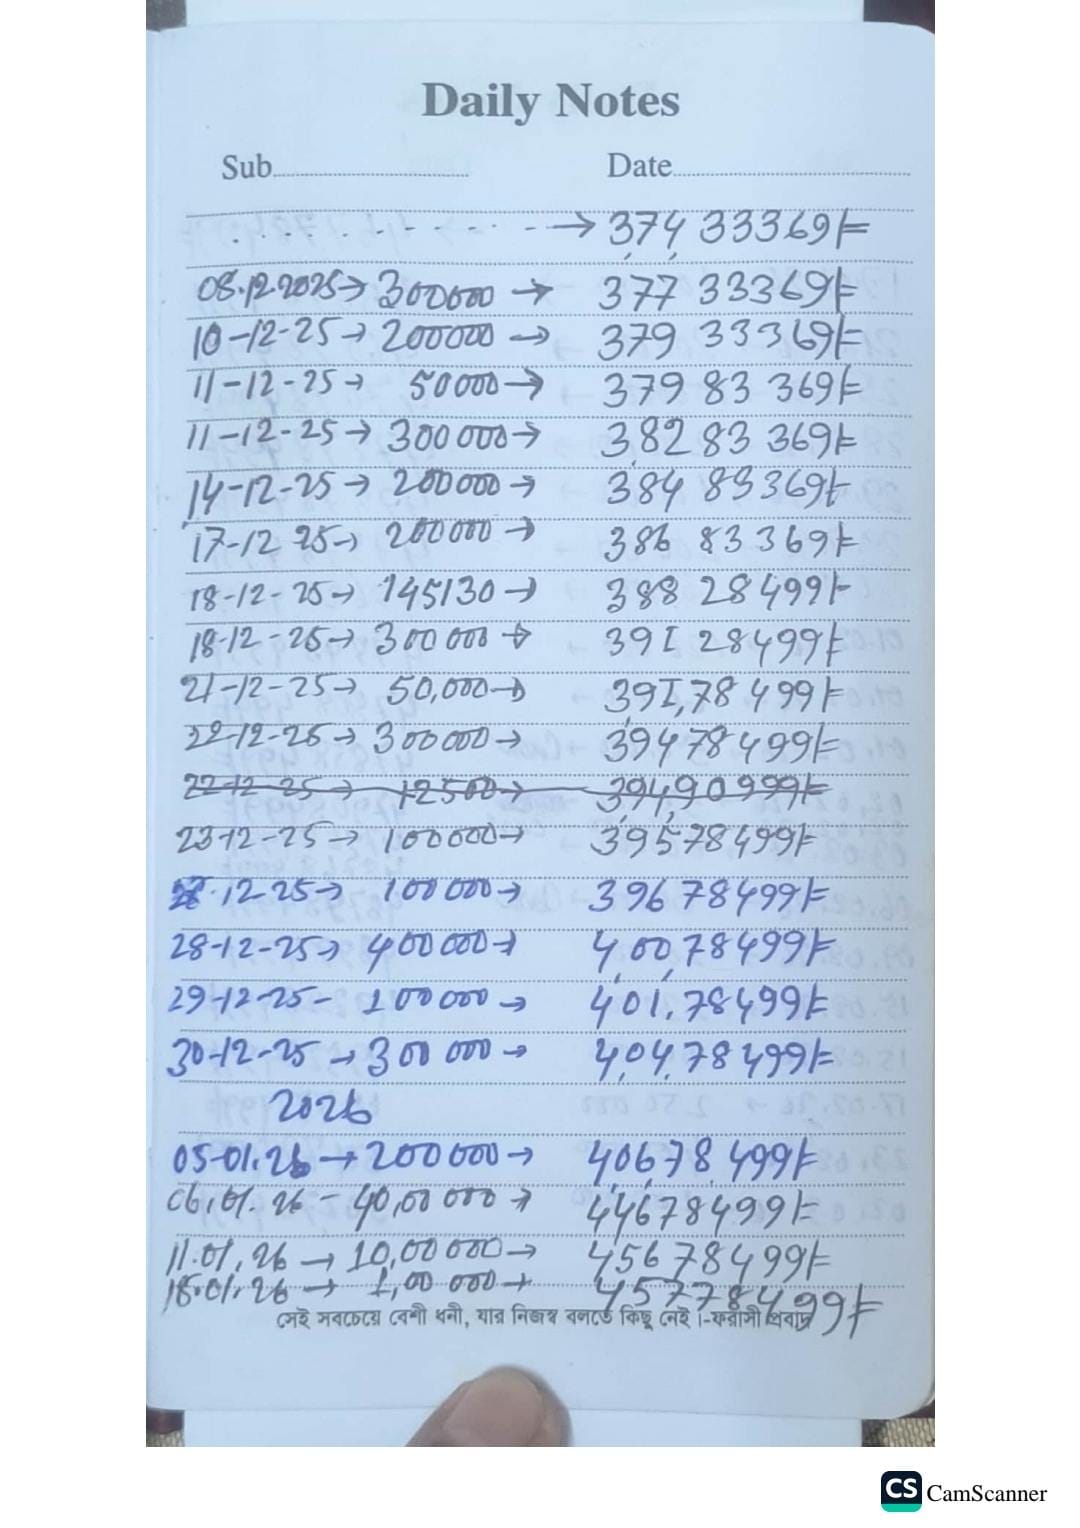 Daily Notes
Sub.................... Date....................
. . . . . . . . . . - → 374,33369/=
08.12.2025→ 300000 → 37733369/=
10-12-25→ 200000 → 37933369/=
11-12-25→ 50000→ 37983369/=
11-12-25→ 300000→ 38283369/=
14-12-25→ 200000→ 38483369/=
17-12 25→ 200000→ 38683369/=
18-12-25→ 145130→ 38828499/=
18-12-25→ 300000→ 39128499/=
21-12-25→ 50,000→ 391,78499/=
22-12-25→ 300000→ 39478499/=
22-12-25→ 12500→ 39490999/=
23-12-25→ 100000→ 39578499/=
12-25→ 100000→ 39678499/=
28-12-25→ 400000→ 4,00,78499/=
29-12-25- 100000→ 401,78499/=
30-12-25→ 300000→ 4,04,78499/=
2026
05-01.26→ 200000→ 4,06,78,499/=
06.01.26- 40,00000→ 44678499/=
11.01.26→ 10,00000→ 45678499/=
18.01.26→ 1,00000→ 45778499/=
সেই সবচেয়ে বেশী ধনী, যার নিজস্ব বলতে কিছু নেই।-ফরাসী প্রবাদ
CS CamScanner